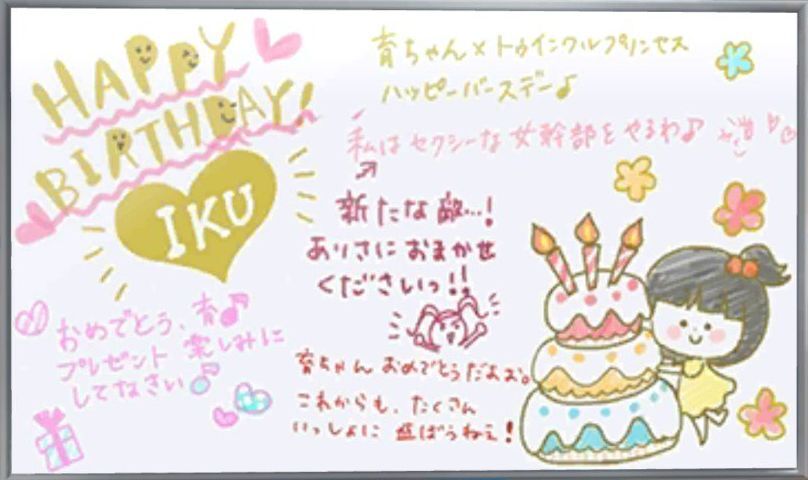 HAPPY
BIRTHDAY!
IKU
育ちゃん×トゥインクルプリンセス
ハッピーバースデー♪
私はセクシーな女幹部をやるわ♪
新たな敵…!
ありさにおまかせ
くださいっ!!
おめでとう、育♪
プレゼント楽しみに
してなさい♪
育ちゃんおめでとうだよぉ。
これからも、たくさん
いっしょに遊ぼうねぇ!